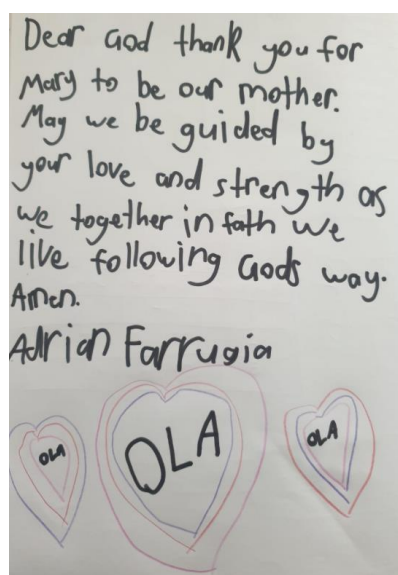 Dear God thank you for
Mary to be our mother.
May we be guided by
your love and strength as
we together in fath we
live following Gods way.
Amen.
Adrian Farrugia
OLA
OLA
OLA